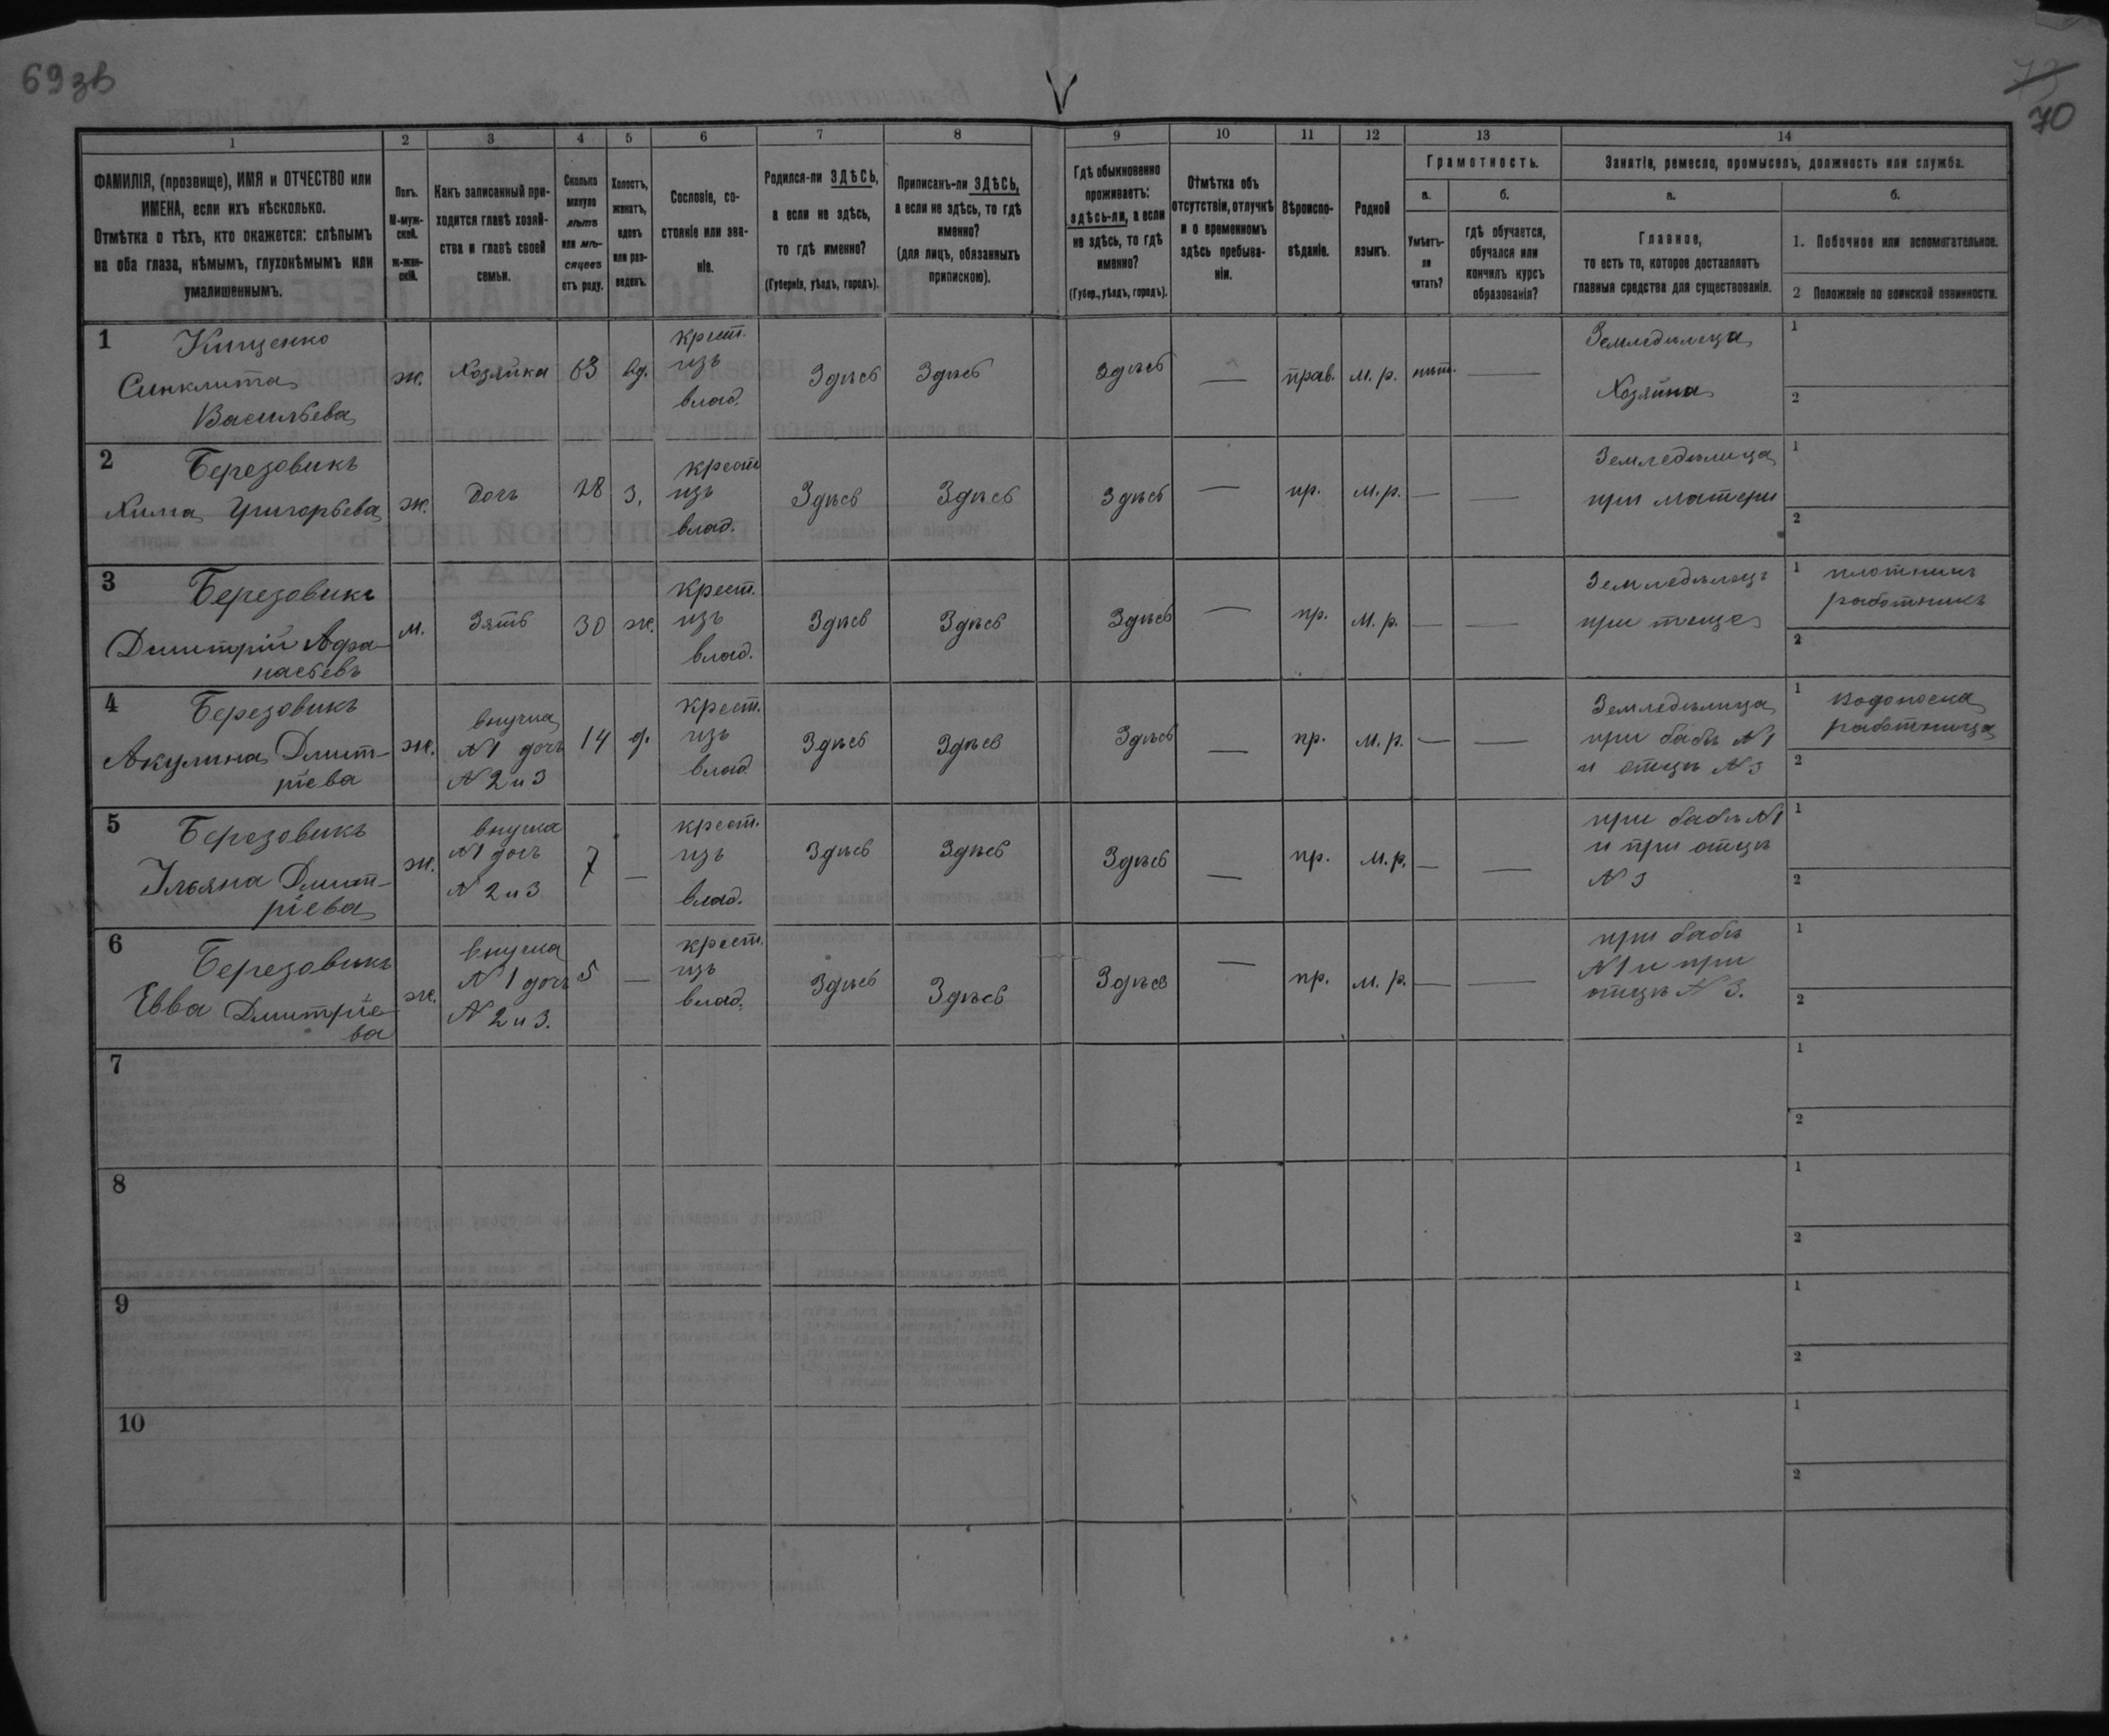 69 зв
73
70
1 2 3 4 5 6 7 8 9 10 11 12 13 14
ФАМИЛІЯ, (прозвище), ИМЯ и ОТЧЕСТВО или
ИМЕНА, если ихъ нѣсколько.
Отмѣтка о тѣхъ, кто окажется: слѣпымъ
на оба глаза, нѣмымъ, глухонѣмымъ или
умалишеннымъ.
Полъ.
М-муж-
ской.
ж-жен-
скій.
Какъ записанный при-
ходится главѣ хозяй-
ства и главѣ своей
семьи.
Сколько
минуло
лѣтъ
или мѣ-
сяцевъ
отъ роду.
Холостъ,
женатъ,
вдовъ
или раз-
веденъ.
Сословіе, со-
стояніе или зва-
ніе.
Родился-ли ЗДѢСЬ,
а если не здѣсь,
то гдѣ именно?
(Губернія, уѣздъ, городъ).
Приписанъ-ли ЗДѢСЬ,
а если не здѣсь, то гдѣ
именно?
(для лицъ, обязанныхъ
припискою).
Гдѣ обыкновенно
проживаетъ:
здѣсь-ли, а если
не здѣсь, то гдѣ
именно?
(Губер., уѣздъ, городъ).
Отмѣтка объ
отсутствіи, отлучкѣ
и о временномъ
здѣсь пребыва-
ніи.
Вѣроиспо-
вѣданіе.
Родной
языкъ.
Грамотность.
а.
Умѣетъ-
ли
читать?
б.
гдѣ обучается,
обучался или
кончилъ курсъ
образованія?
Занятіе, ремесло, промыселъ, должность или служба.
а.
Главное,
то есть то, которое доставляетъ
главныя средства для существованія.
б.
1. Побочное или вспомогательное.
2 Положеніе по воинской повинности.
1 Кищенко
Синклита
Васильева
ж.
Хозяйка
63
вд.
крест.
изъ
влад.
Здѣсь
Здѣсь
Здѣсь
—
прав.
м. р.
нѣт.
—
Земледѣлица
Хозяйка
1
2
2 Березовикъ
Хима Григорьева
ж.
дочь
28
з.
крест
изъ
влад.
Здѣсь
Здѣсь
Здѣсь
—
пр.
м. р.
—
—
Земледѣлица
при матери
1
2
3 Березовикъ
Димитрій Афа-
насьевъ
м.
Зять
30
ж.
крест.
изъ
влад.
Здѣсь
Здѣсь
Здѣсь
—
пр.
м. р.
—
—
Земледѣлецъ
при теще
1 плотникъ
работникъ
2
4 Березовикъ
Акулина Дмит-
ріева
ж.
внучка
№ 1 дочь
№ 2 и 3
14
д.
крест.
изъ
влад.
Здѣсь
Здѣсь
Здѣсь
—
пр.
м. р.
—
—
Земледѣлица
при бабѣ № 1
и отцѣ № 3
1 водоноска
работница
2
5 Березовикъ
Ульяна Дмит-
ріева
ж.
внучка
№ 1 дочь
№ 2 и 3
7
—
крест.
изъ
влад.
Здѣсь
Здѣсь
Здѣсь
—
пр.
м. р.
—
—
при бабѣ № 1
и при отцѣ
№ 3
1
2
6 Березовикъ
Евва Дмитріе-
ва
ж.
внучка
№ 1 дочь
№ 2 и 3.
5
—
крест.
изъ
влад.
Здѣсь
Здѣсь
Здѣсь
—
пр.
м. р.
—
—
при бабѣ
№ 1 и при
отцѣ № 3.
1
2
7
1
2
8
1
2
9
1
2
10
1
2